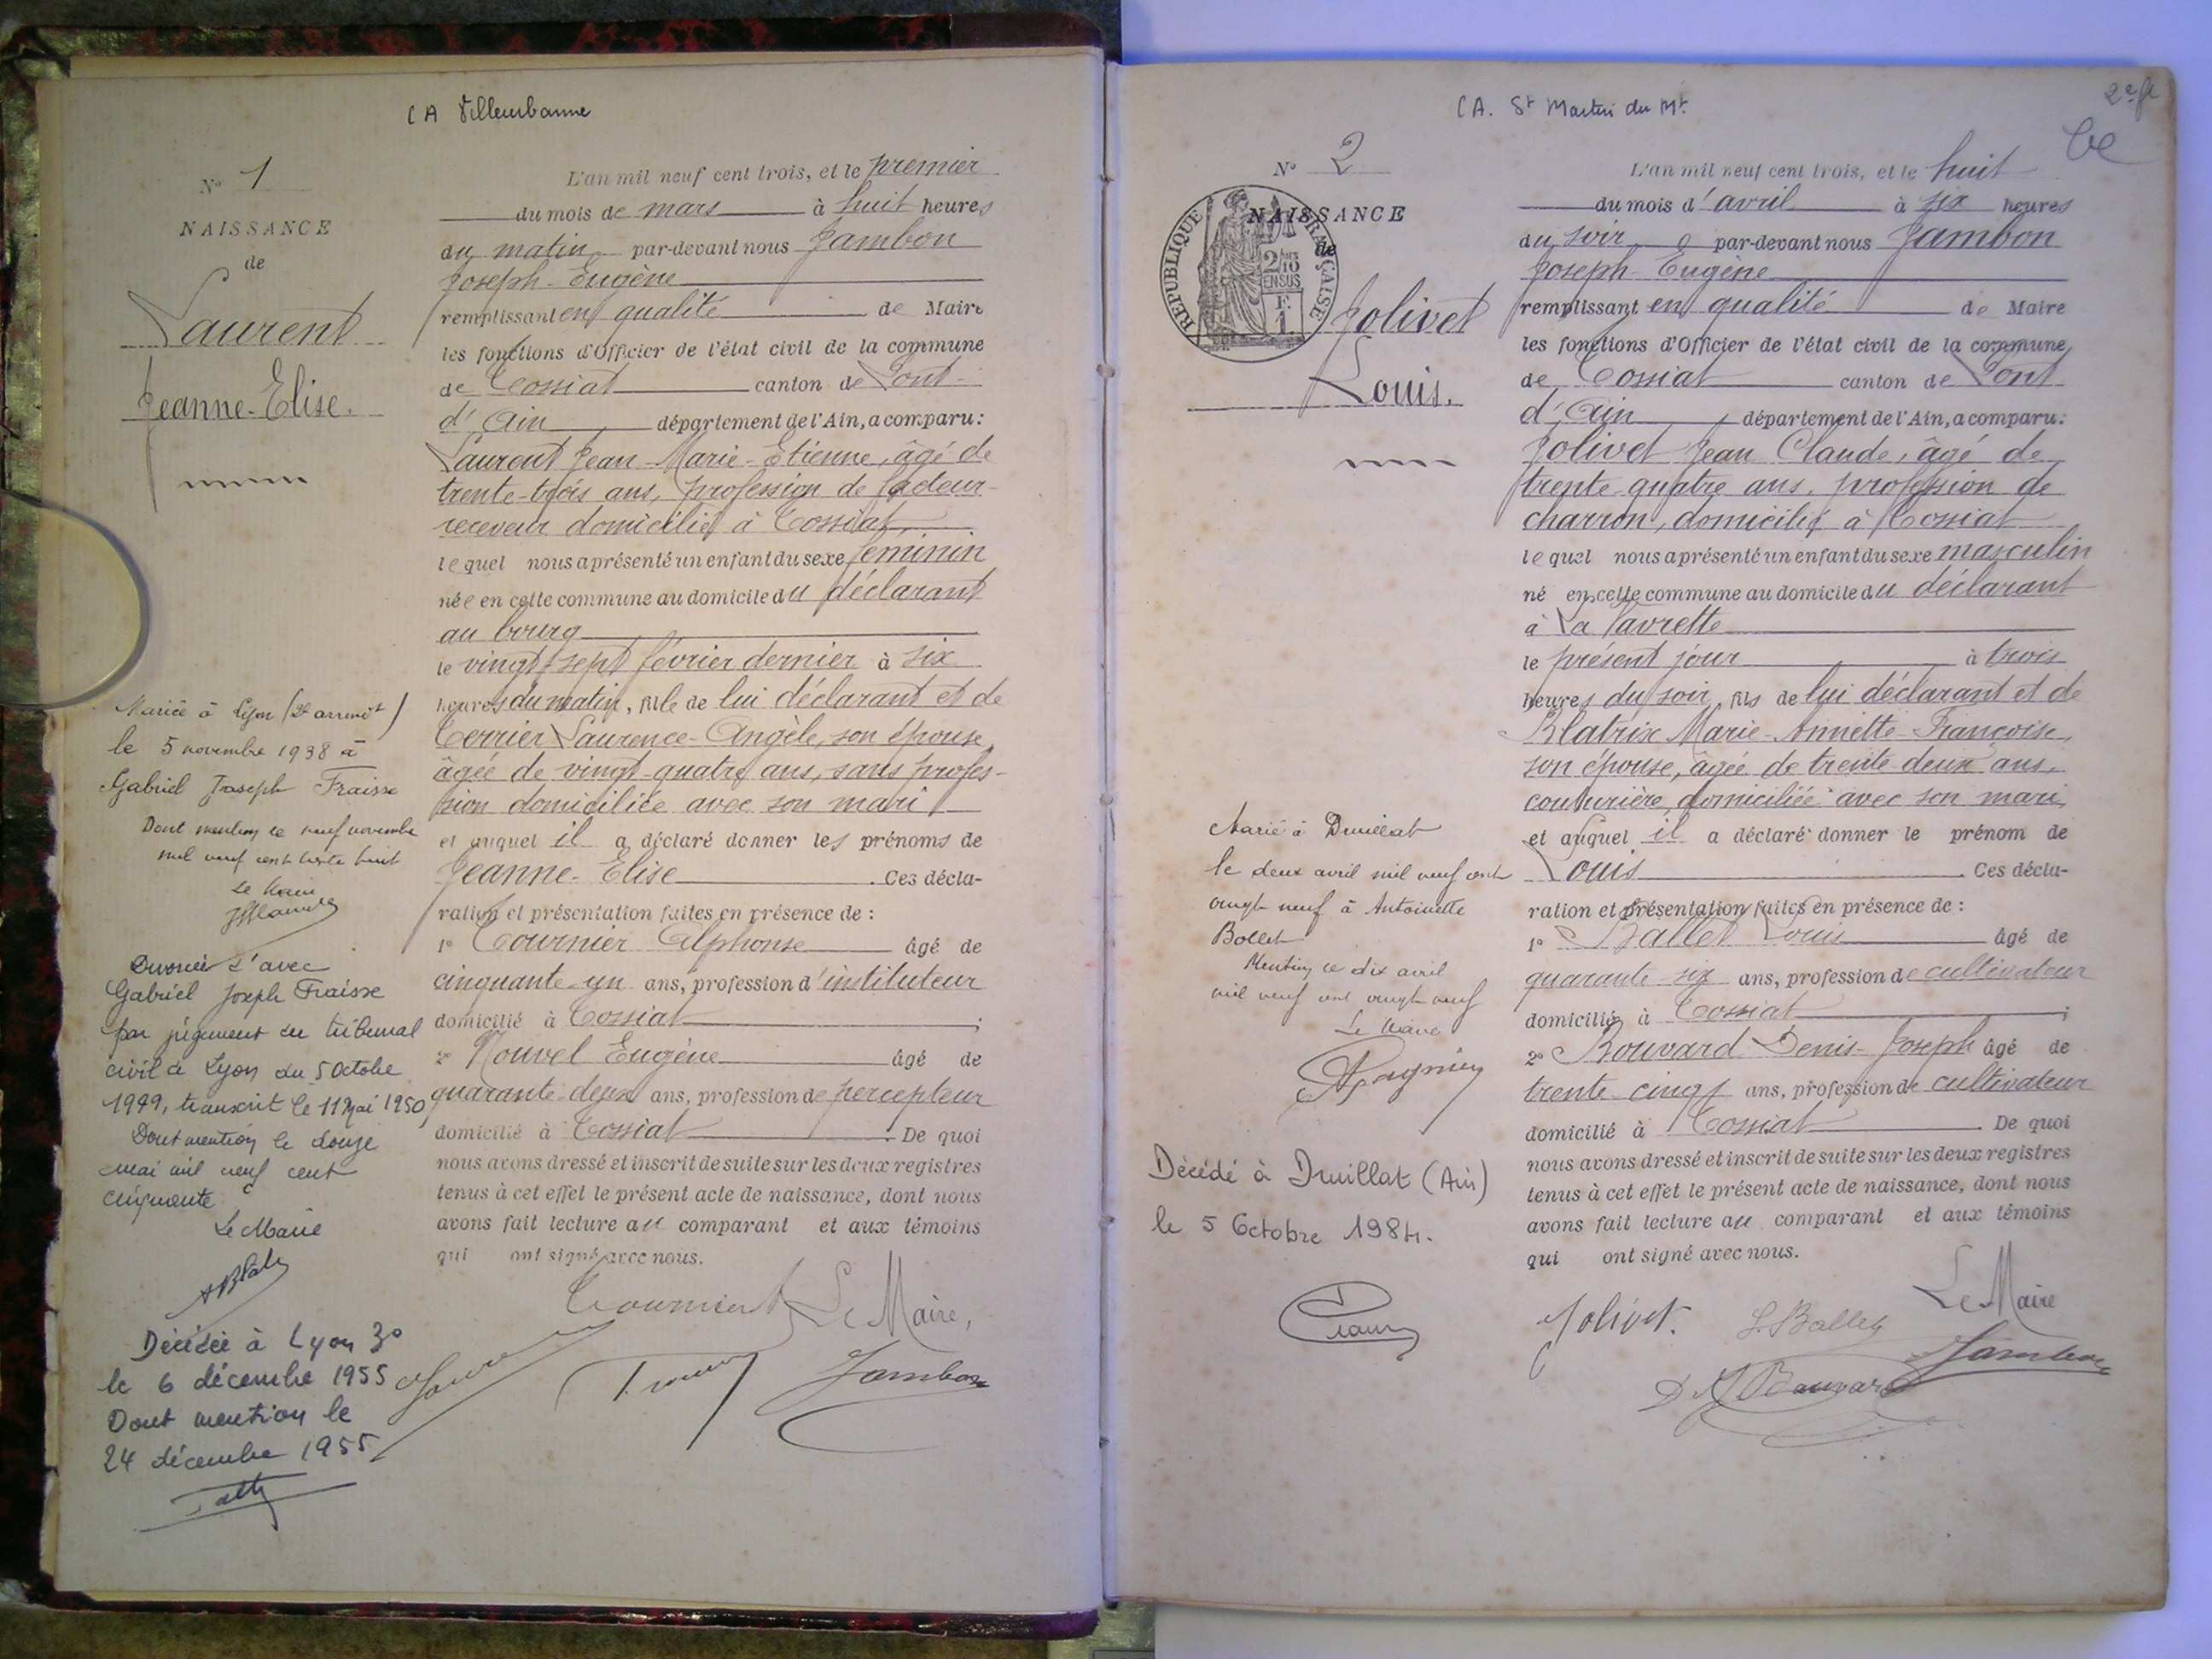 CA Villeurbanne
N° 1
NAISSANCE
de
Laurent
Jeanne-Elise.
Mariée à Lyon (2e arrondt)
le 5 novembre 1938 à
Gabriel Joseph Fraisse
Dont mention ce neuf novembre
mil neuf cent trente huit
Le Maire
Divorcée d'avec
Gabriel Joseph Fraisse
par jugement du tribunal
civil de Lyon du 5 Octobre
1949, transcrit le 11 Mai 1950
Dont mention le douze
mai mil neuf cent
cinquante
Le Maire
Décédée à Lyon 3e
le 6 décembre 1955
Dont mention le
24 décembre 1955
L'an mil neuf cent trois, et le premier
du mois de mars à huit heures
du matin par-devant nous Jambon
Joseph-Eugène
remplissant en qualité de Maire
les fonctions d'Officier de l'état civil de la commune
de Tossiat canton de Pont-
d'Ain département de l'Ain, a comparu:
Laurent Jean-Marie-Etienne, âgé de
trente-trois ans, profession de facteur-
receveur domicilié à Tossiat,
lequel nous a présenté un enfant du sexe féminin
née en cette commune au domicile du déclarant
au bourg
le vingt-sept février dernier à six
heures du matin, fille de lui déclarant et de
Terrier Laurence-Angèle, son épouse,
âgée de vingt-quatre ans, sans profes-
sion domiciliée avec son mari
et auquel il a déclaré donner les prénoms de
Jeanne-Elise. Ces décla-
ration et présentation faites en présence de :
1° Tournier Alphonse âgé de
cinquante-un ans, profession d'instituteur
domicilié à Tossiat ;
2° Nouvel Eugène âgé de
quarante-deux ans, profession de percepteur
domicilié à Tossiat. De quoi
nous avons dressé et inscrit de suite sur les deux registres
tenus à cet effet le présent acte de naissance, dont nous
avons fait lecture au comparant et aux témoins
qui ont signé avec nous.
Tournier Le Maire,
Jambon
CA. St Martin du Mt
2e ft
N° 2
NAISSANCE
de
REPUBLIQUE FRANÇAISE
2/10 EN SUS
Jolivet
Louis.
Marié à Druillat
le deux avril mil neuf cent
vingt neuf à Antoinette
Bollet
Mention ce dix avril
mil neuf cent vingt neuf
Le Maire
Décédé à Druillat (Ain)
le 5 Octobre 1984.
L'an mil neuf cent trois, et le huit
du mois d'avril à six heures
du soir par-devant nous Jambon
Joseph-Eugène
remplissant en qualité de Maire
les fonctions d'Officier de l'état civil de la commune
de Tossiat canton de Pont
d'Ain, département de l'Ain, a comparu:
Jolivet Jean Claude, âgé de
trente-quatre ans, profession de
charron, domicilié à Tossiat
lequel nous a présenté un enfant du sexe masculin
né en cette commune au domicile du déclarant
à La Lavrette
le présent jour à trois
heures du soir, fils de lui déclarant et de
Blatrix Marie-Annette-Françoise,
son épouse, âgée de trente-deux ans,
couturière, domiciliée avec son mari
et auquel il a déclaré donner le prénom de
Louis. Ces décla-
ration et présentation faites en présence de :
1° Ballet Louis âgé de
quarante-six ans, profession de cultivateur
domicilié à Tossiat ;
2° Bouvard Denis-Joseph âgé de
trente cinq ans, profession de cultivateur
domicilié à Tossiat. De quoi
nous avons dressé et inscrit de suite sur les deux registres
tenus à cet effet le présent acte de naissance, dont nous
avons fait lecture au comparant et aux témoins
qui ont signé avec nous.
Le Maire
Jolivet. L. Ballet
Jambon
D J Bouvard